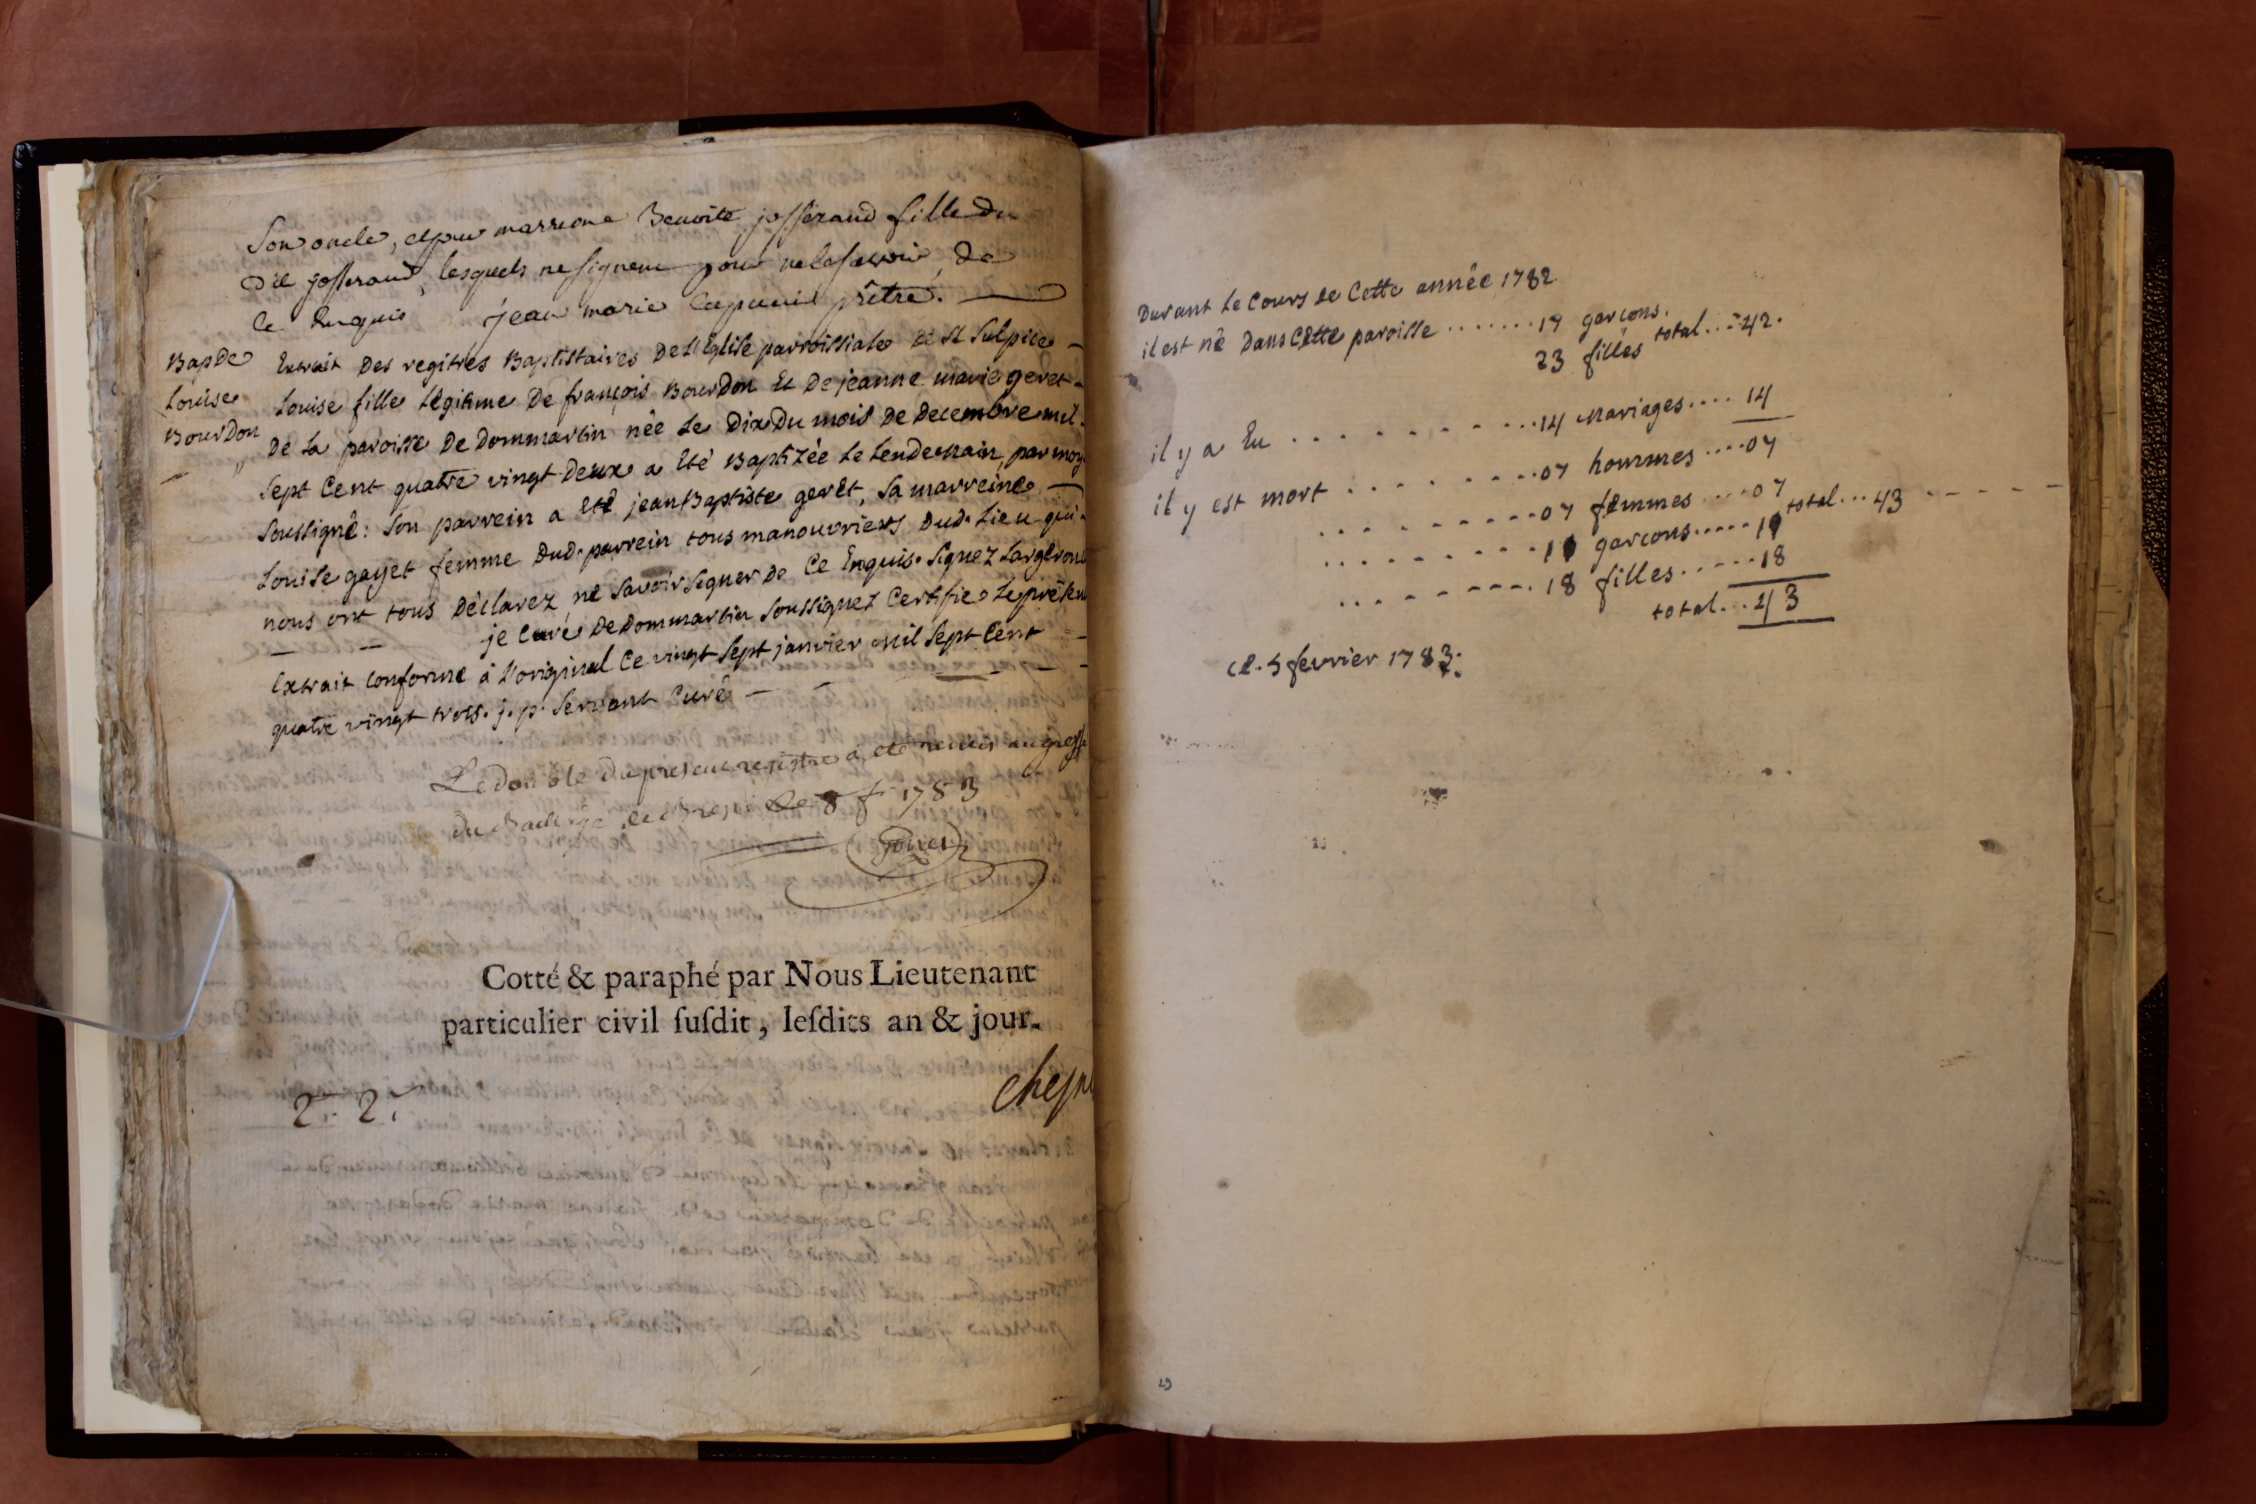 Son oncle, et pour marreine Benoite josserand fille du
dit josserand, lesquels ne signent pour ne le savoir, de
ce enquis jean marie prêtre.
Bap de
Louise
Bourdon
Extrait Des regitres Baptistaires De l'Eglise parroissiale de St Sulpice
Louise fille légitime De françois Bourdon Et De jeanne marie geret
De la paroisse De Dommartin née Le Dix Du mois De Decembre mil
Sept Cent quatre vingt Deux a Eté Baptizée Le Lendemain, par moy
Soussigné: Son parrein a Eté jean Baptiste gerêt, Sa marreine
Louise gayet femme Dud. parrein tous manouvriers Dud. Lieu qui
nous ont tous Déclarez ne Savoir Signer De Ce Enquis. Signez
je Curé De Dommartin Soussignez Certifie Le présent
Extrait conforme à L'original Ce vingt Sept janvier mil Sept Cent
quatre vingt trois. j. p. Servant Curé
Le double du present registre a ete remis au greffe
du Bailliage de Bresse Le 8 f. 1783
Cotté & paraphé par Nous Lieutenant
particulier civil suſdit, leſdits an & jour.
Durant Le Cours de Cette année 1782
il est né Dans Cette paroisse ....... 19 garcons.
23 filles total ... 42.
il y a Eu .......... 14 Mariages .... 14
il y est mort ........ 07 hommes .... 07
......... 07 femmes .... 07
........ 11 garcons ..... 11 total ... 43
........ 18 filles ...... 18
total ... 43
ce. 5 fevrier 1783.